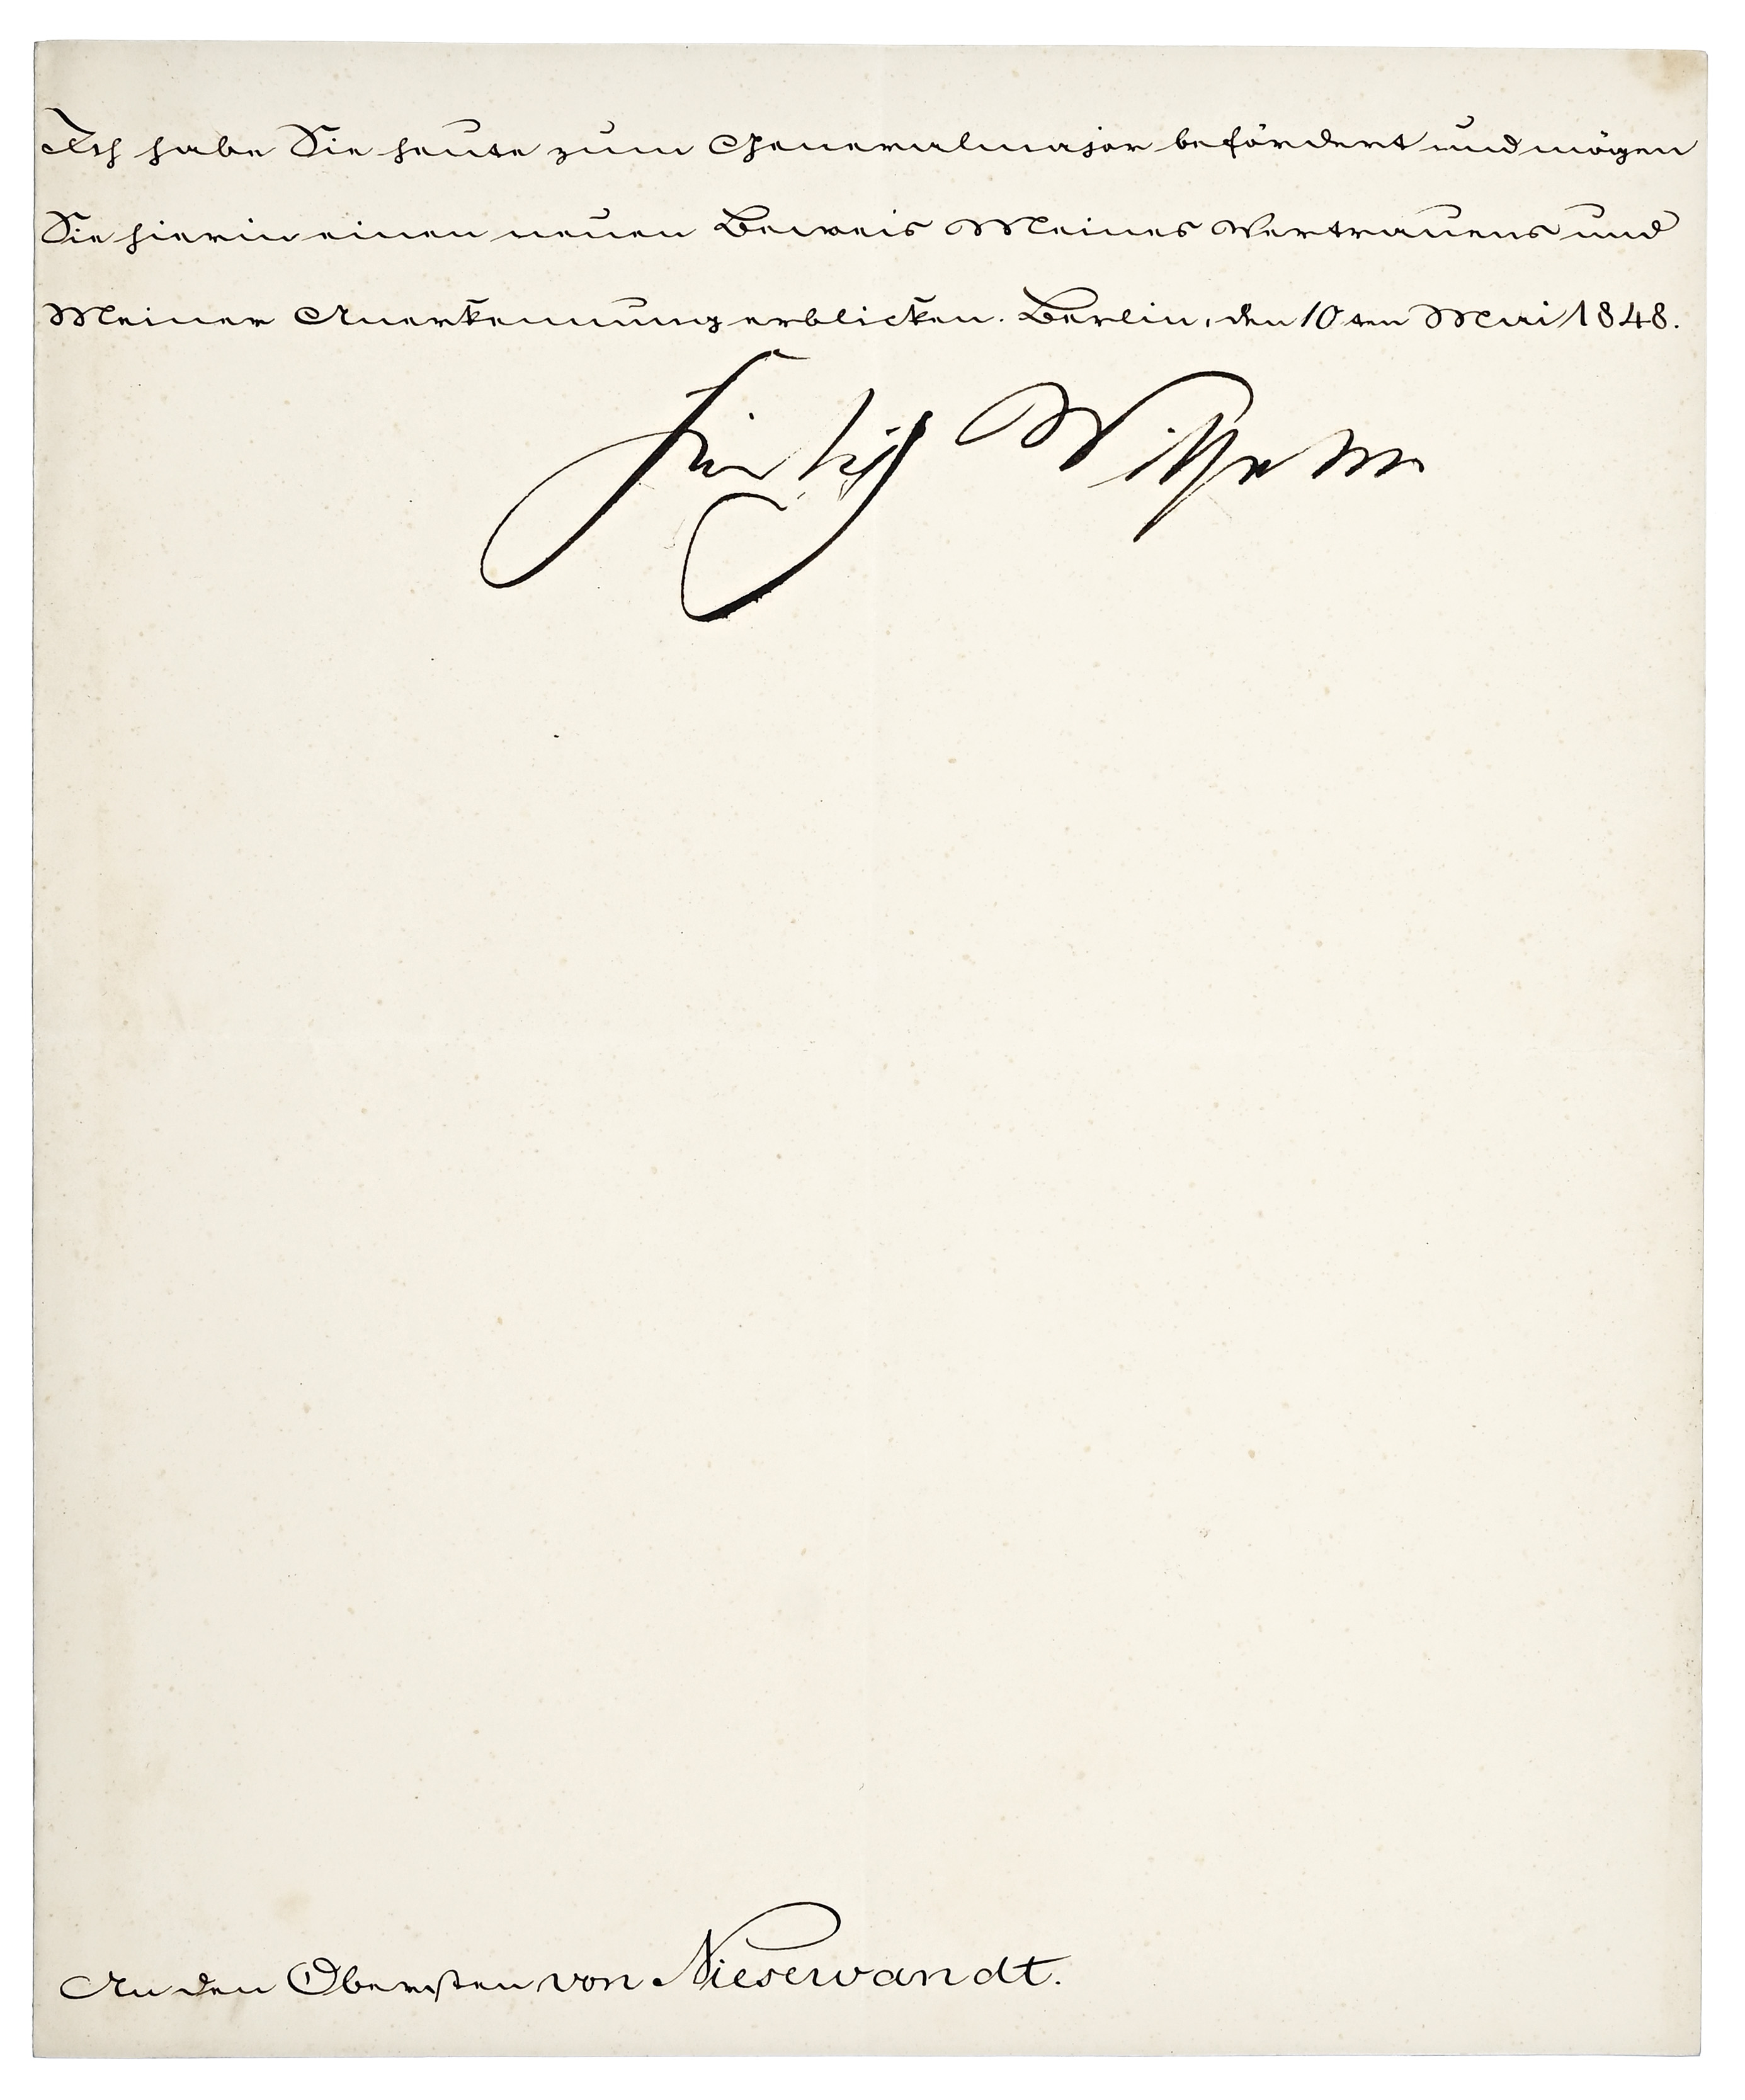 Ich habe Sie heute zum Generalmajor befördert und mögen
Sie hierin einen neuen Beweis Meines Vertrauens und
Meiner Anerkennung erblicken. Berlin, den 10ten Mai 1848.
Wilhelm
An den Obersten von Niesewandt.